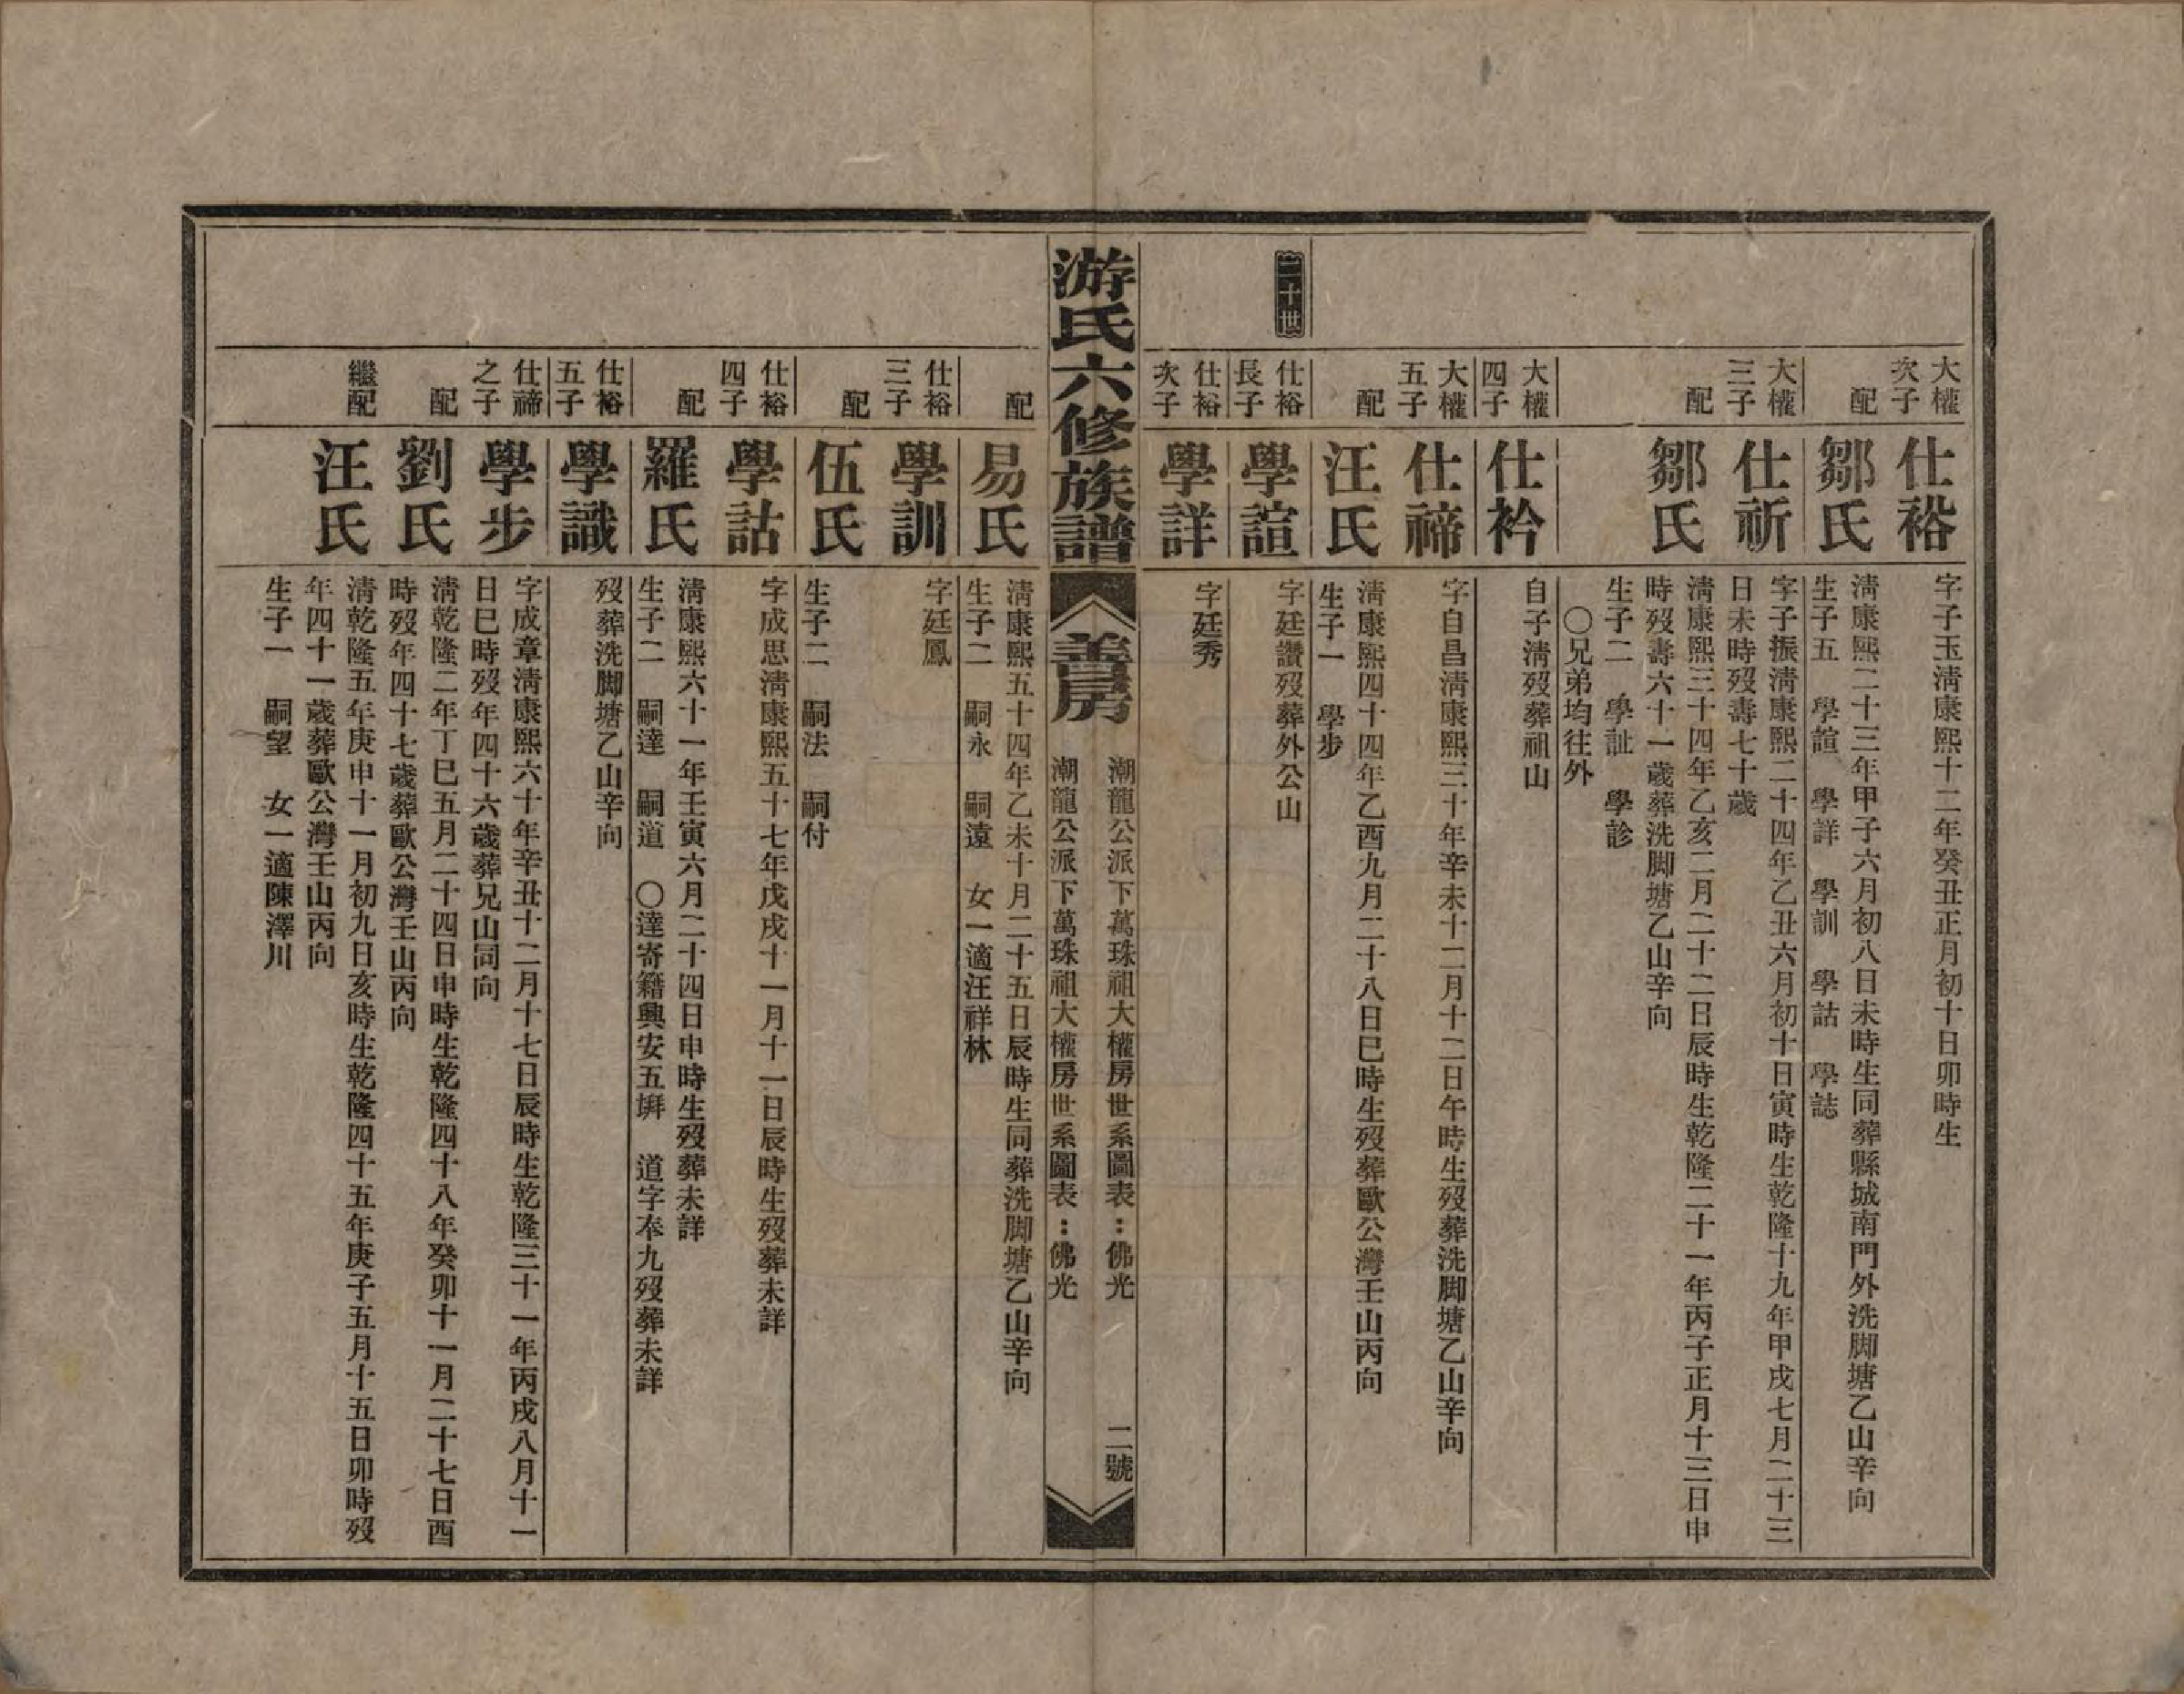 大權
次子
仕裕
字子玉淸康熙十二年癸丑正月初十日卯時生
配
鄒氏
淸康熙二十三年甲子六月初八日未時生同葬縣城南門外洗脚塘乙山辛向
生子五　學諠　學詳　學訓　學詁　學誌
大權
三子
仕祈
字子振淸康熙二十四年乙丑六月初十日寅時生乾隆十九年甲戌七月二十三
日未時歿壽七十歲
配
鄒氏
淸康熙三十四年乙亥二月二十二日辰時生乾隆二十一年丙子正月十三日申
時歿壽六十一歲葬洗脚塘乙山辛向
生子二　學訨　學診
〇兄弟均往外
大權
四子
仕衿
自子淸歿葬祖山
大權
五子
仕禘
字自昌淸康熙三十年辛未十二月十二日午時生歿葬洗脚塘乙山辛向
配
汪氏
淸康熙四十四年乙酉九月二十八日巳時生歿葬歐公灣壬山丙向
生子一　學步
二十世
仕裕
長子
學諠
字廷讚歿葬外公山
仕裕
次子
學詳
字廷秀
游氏六修族譜
善房
潮龍公派下萬珠祖大權房世系圖表：佛光
二號
潮龍公派下萬珠祖大權房世系圖表：佛光
配
易氏
淸康熙五十四年乙未十月二十五日辰時生同葬洗脚塘乙山辛向
生子二　嗣永　嗣遠　女一適汪祥林
仕裕
三子
學訓
字廷鳳
配
伍氏
生子二　嗣法　嗣付
仕裕
四子
學詁
字成思淸康熙五十七年戊戌十一月十一日辰時生歿葬未詳
配
羅氏
淸康熙六十一年壬寅六月二十四日申時生歿葬未詳
生子二　嗣達　嗣道　〇達寄籍興安五塀　道字本九歿葬未詳
仕裕
五子
學識
歿葬洗脚塘乙山辛向
仕禘
之子
學步
字成章淸康熙六十年辛丑十二月十七日辰時生乾隆三十一年丙戌八月十一
日巳時歿年四十六歲葬兄山同向
配
劉氏
淸乾隆二年丁巳五月二十四日申時生乾隆四十八年癸卯十一月二十七日酉
時歿年四十七歲葬歐公灣壬山丙向
繼配
汪氏
淸乾隆五年庚申十一月初九日亥時生乾隆四十五年庚子五月十五日卯時歿
年四十一歲葬歐公灣壬山丙向
生子一　嗣望　女一適陳澤川